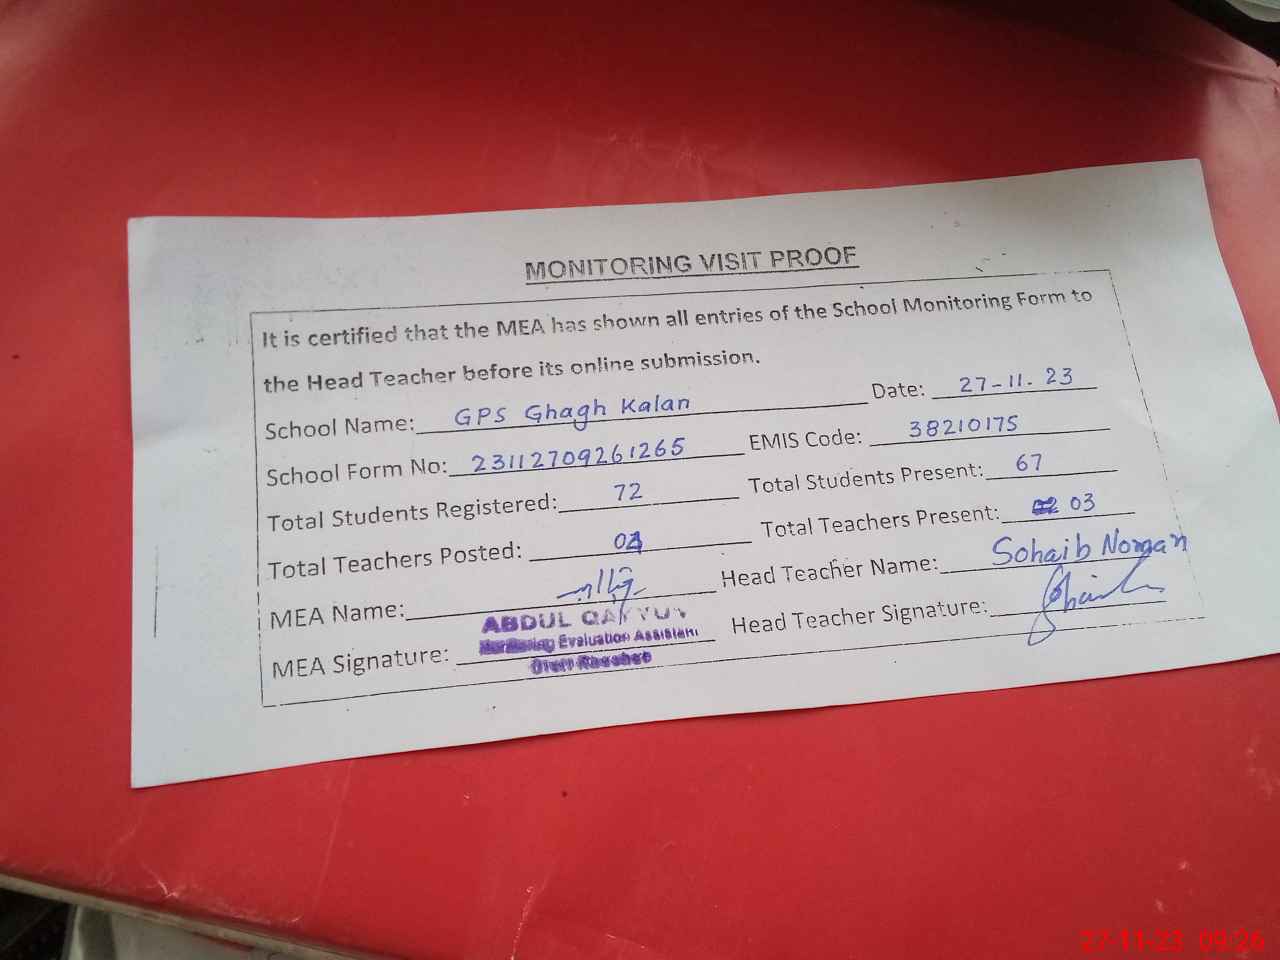 MONITORING VISIT PROOF
It is certified that the MEA has shown all entries of the School Monitoring Form to
the Head Teacher before its online submission.
School Name: GPS Ghagh Kalan Date: 27-11-23
School Form No: 23112709261265 EMIS Code: 38210175
Total Students Registered: 72 Total Students Present: 67
Total Teachers Posted: Total Teachers Present: 03
MEA Name: Head Teacher Name: Sohaib Noman
ABDUL QAYYUM
Monitoring Evaluation Assistant
MEA Signature: Head Teacher Signature:
27-11-23 09:26